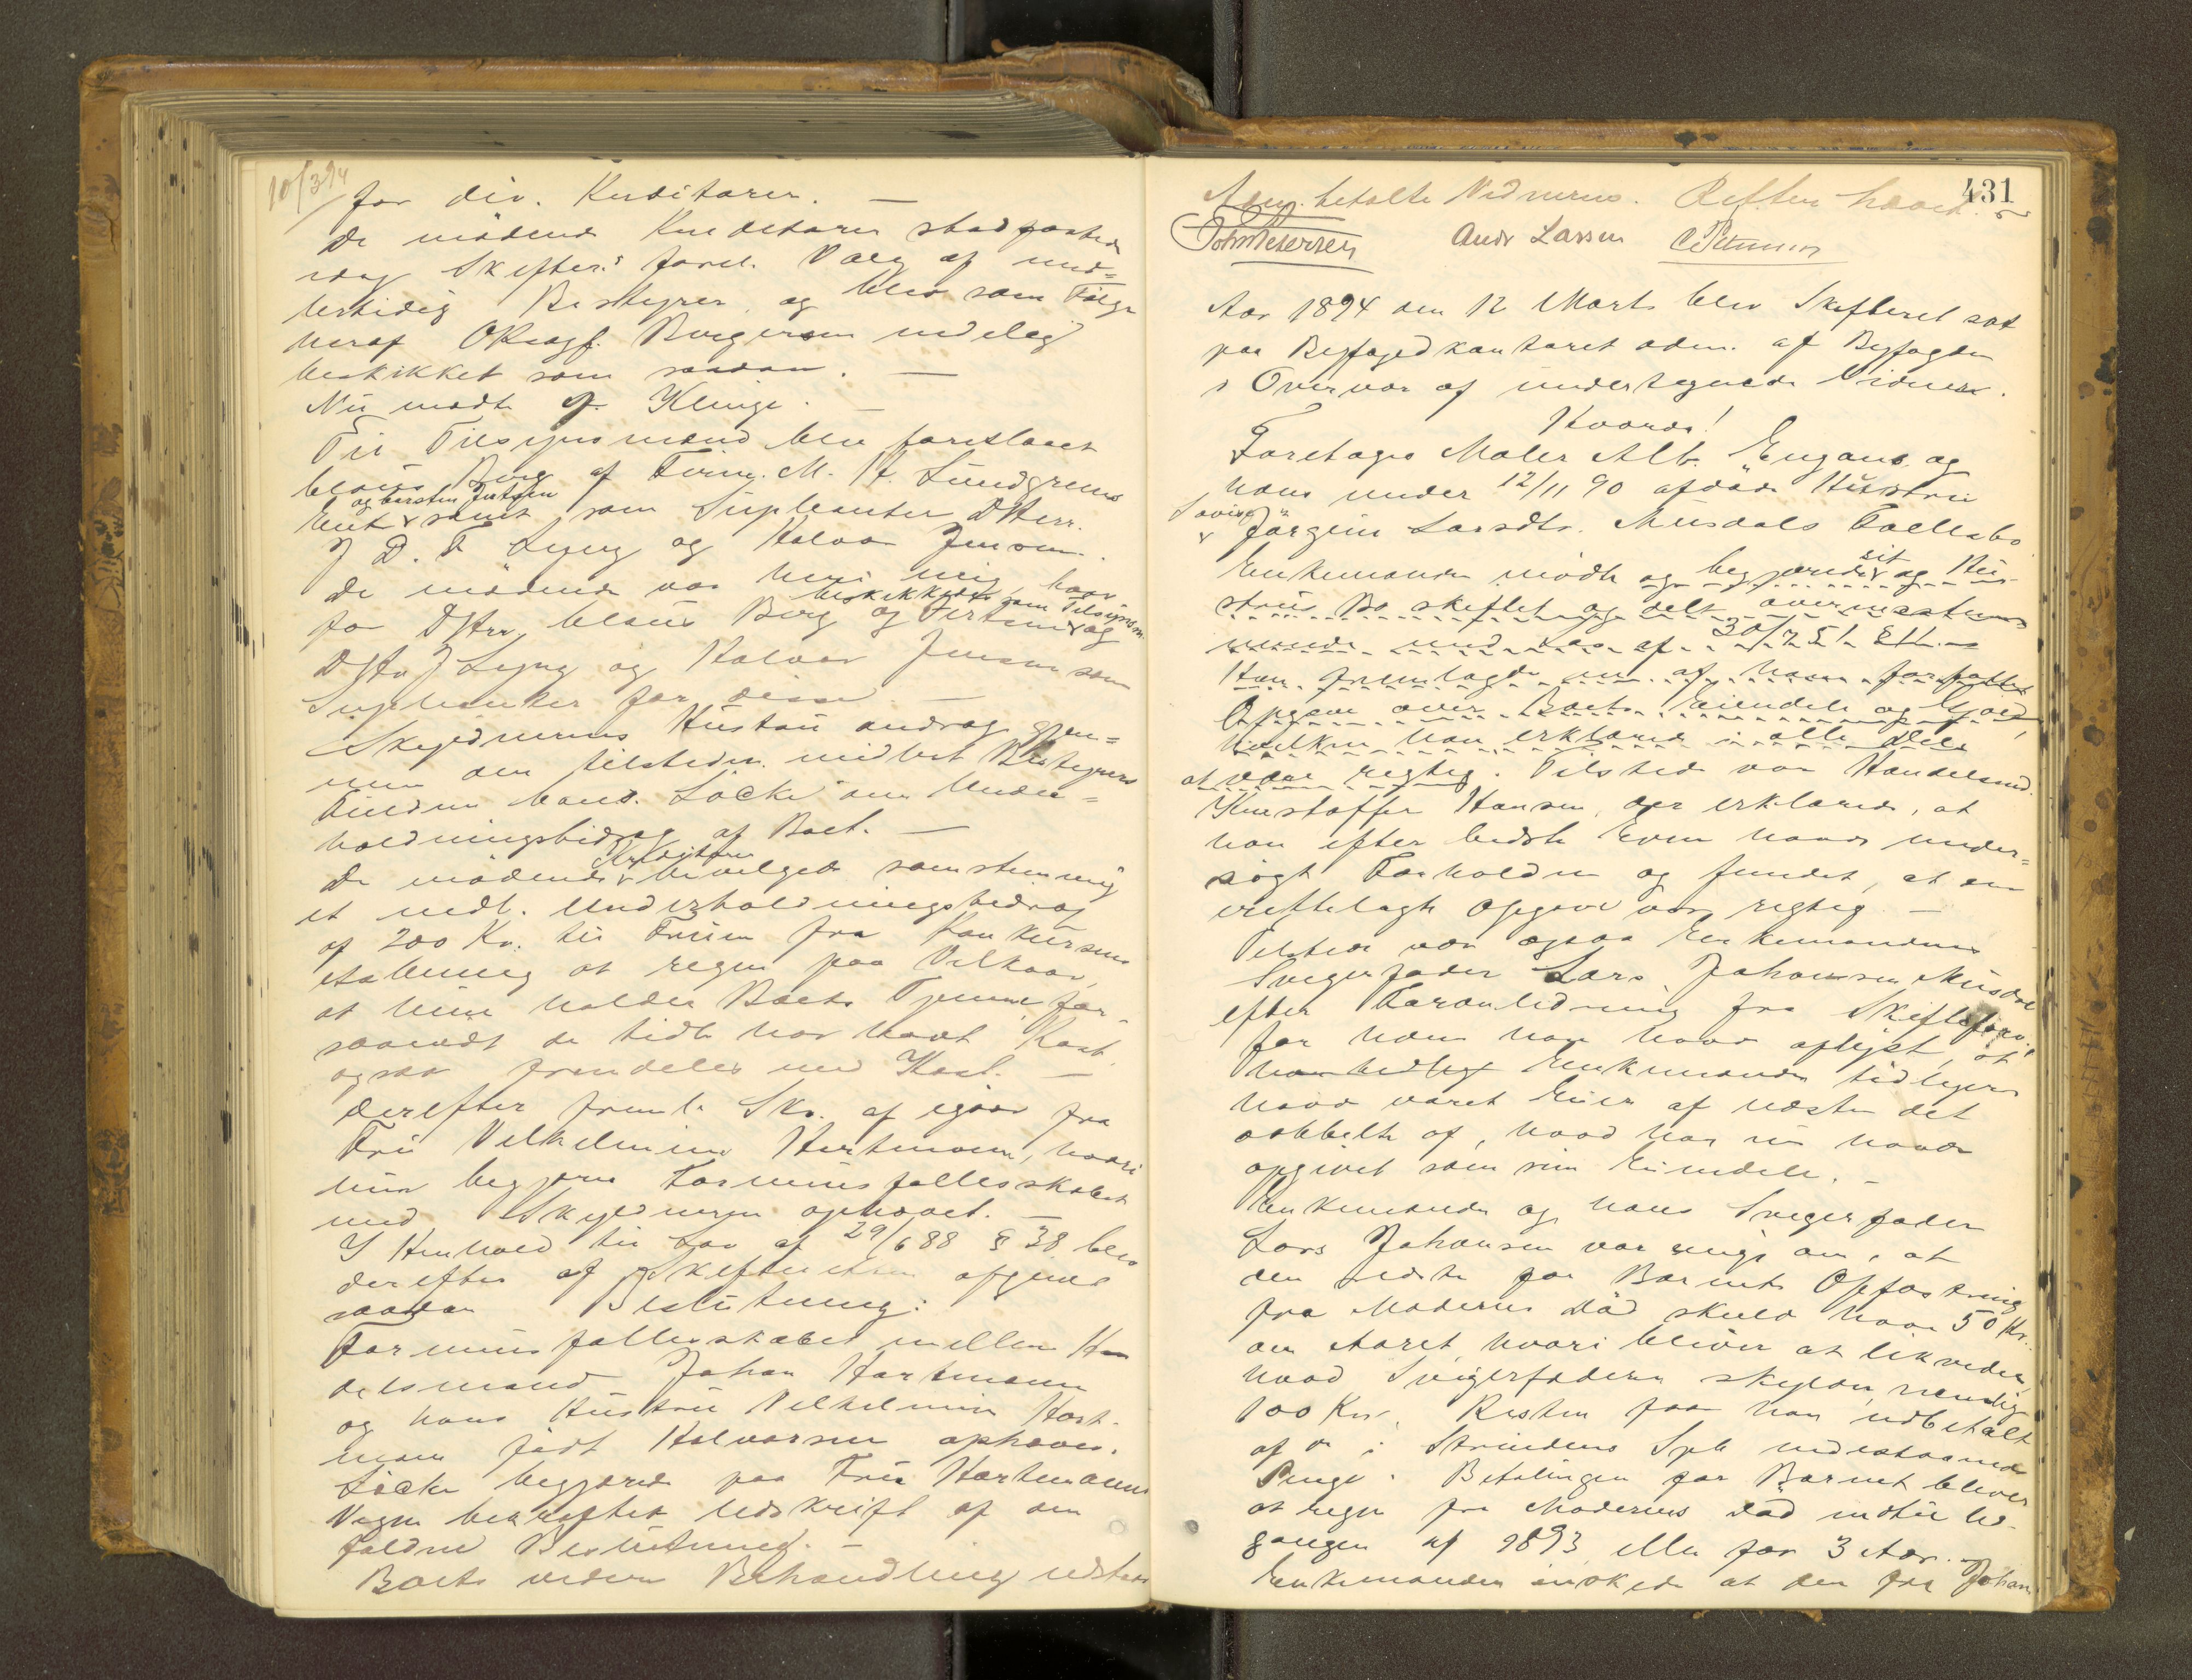 10/3 94
for div. Kreditorer. —
De mødende Kreditorer stadfæstede
idag Skifter. forel. Valg af mid=
lertidig Bestyrer, og blev som Følge
heraf ORsagf. Borgersen endelig
beskikket som saadan. —
Nu mødte Klinge. —
Til Tilsynsmænd blev foreslaaet
Claus Berg af Firma M. H. Lundgrens
Enke samt som Suplanter DHrr.
J D. F Lysng og Halvor Jensen.
De mødende var heri enig, hvor
for DHrr. Claus Berg og beskikkedes som Tilsynsm. og
DHr J Lysng og Halvor Jensen som
Suplanter for disse —
Skyldnerens Hustru androg gjen=
nem den tilstedev. midlert Bestyrers
Fuldm. Løcke om Under=
holdningsbidrag af Boet. —
De mødende Kreditorer bevilgede samstemmig
et midl. Underholdningsbidrag
af 200 Kr. til Fruen fra Konkursens
Aabning at regne paa Vilkaar,
at hun holder Boets Tjenere, for-
saavidt de tidl. har havt Kost,
ogsaa fremdeles med Kost. —
Derefter freml. Skr. af igaar fra
Fru Vilhelmine Hartmann, hvori
hun begjærer Formuesfællesskabet
med Skyldneren ophævet. —
I Henhold til Lov af 29/6 88 § 38 blev
derefter af Skifteretten afgivet
saadan Beslutning:
Formuesfællesskabet mellem Han
delsmand Johan Hartmann
og hans Hustru Vilhelmine Hart-
mann født Halvorsen ophæves.
Løcke begjærede paa Fru Hartmanns
Vegne bekræftet Udskrift af den
faldne Beslutning. —
Boets videre Behandling udsat
431
betalte Vidnerne. Retten hævet.
Joh Petersen Andr Larsen C Petersen
Aar 1894 den 12 Marts blev Skifteret sat
paa Byfogedkontoret adm. af Byfogden
i Overvær af undertegnede Vidner.
Hvorda!
Foretages Maler Alb. Engans og
hans under 12/11 90 afdøde Hustru
Lovise Jørgine Larsdtr. Musdals Fællesbo
Enkemanden mødte og begjærede sit og Hu-
strus Bo skiftet og delt overensstem-
mende med Lov af 30/7 51 §11. —
Han fremlagde en af ham forfattet
Opgave over Boets Eiendele og Gjæld,
hvilken han erklærede i alle Dele
at være rigtig. Tilstede var Handelsmd.
Kristoffer Hansen, der erklærede, at
han efter bedste Evne havde under=
søgt Forholdene og fundet, at den
fremlagte Opgave var rigtig —
Tilstede var ogsaa Enkemandens
Svigerfader Lars Johansen Musdal
efter Foranledning fra Skifteforv.,
for hvem han havde oplyst, at
Enkemanden tidligere
havde været Eier af næsten det
dobbelte af, hvad han nu havde
opgivet som sin Eiendele. —
Enkemanden og hans Svigerfader
Lars Johansen var enige om, at
den sidste for Barnets Opfostring
fra Moderens Død skulde have 50 Kr.
om Aaret, hvori bliver at likvidere
hvad Svigerfaderen skylder, nemlig
100 Kr. Resten faar han udbetalt
af de i Strindens Spb indestaaende
Penge. Betalingen for Barnet bliver
at regne fra Moderens Død indtil Ud-
gangen af 1893 eller for 3 Aar. —
Enkemanden ønskede at den fra Johan